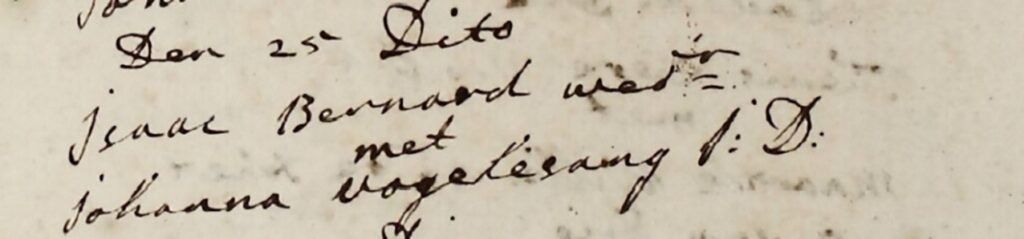 Den 25 Dito
Isaac Bernard wedr
met
Johanna vogelesang J: D: